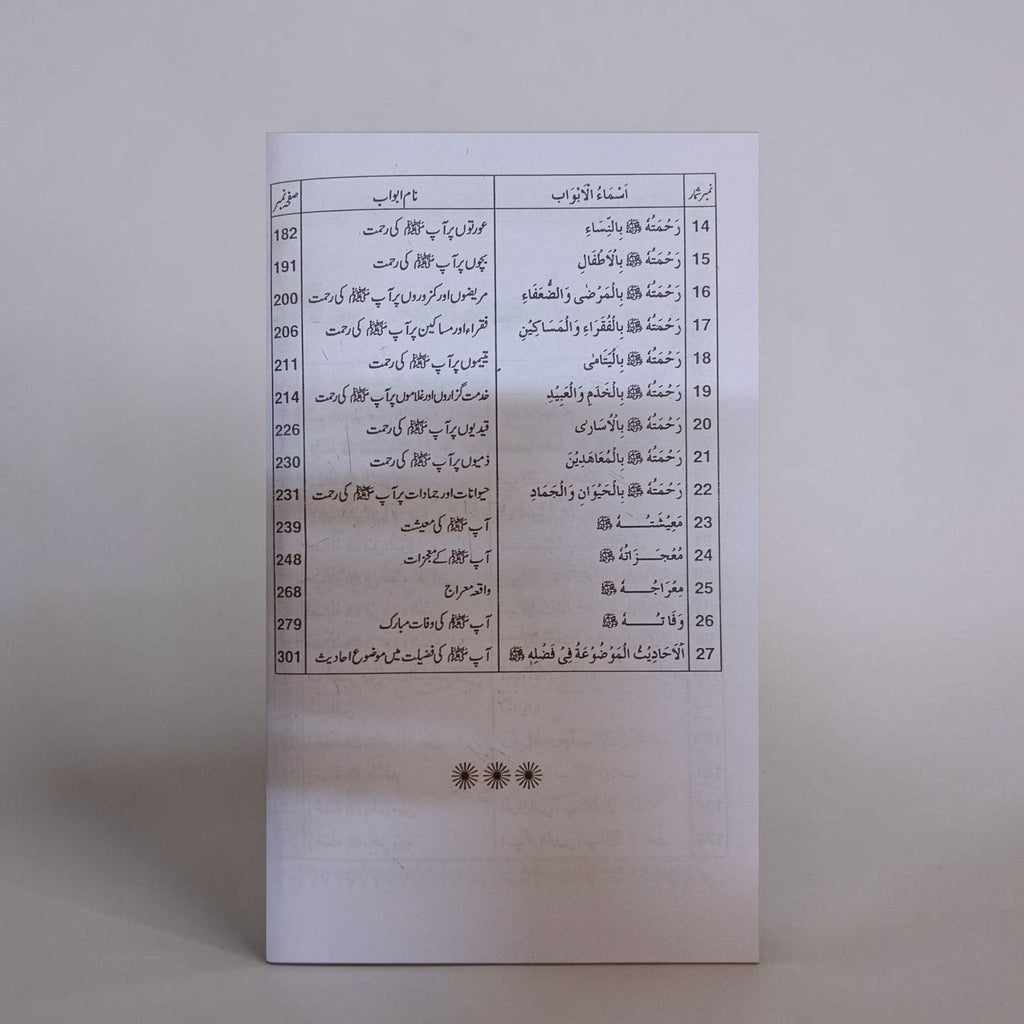 نمبر شمار اَسْمَاءُ الْاَبْوَاب نام ابواب صفحہ نمبر
14 رَحْمَتُهٗ ﷺ بِالنِّسَاءِ عورتوں پر آپ ﷺ کی رحمت 182
15 رَحْمَتُهٗ ﷺ بِالْاَطْفَالِ بچوں پر آپ ﷺ کی رحمت 191
16 رَحْمَتُهٗ ﷺ بِالْمَرْضٰی وَالضُّعَفَاءِ مریضوں اور کمزوروں پر آپ ﷺ کی رحمت 200
17 رَحْمَتُهٗ ﷺ بِالْفُقَرَاءِ وَالْمَسَاكِيْنِ فقراء اور مساکین پر آپ ﷺ کی رحمت 206
18 رَحْمَتُهٗ ﷺ بِالْيَتَامٰی یتیموں پر آپ ﷺ کی رحمت 211
19 رَحْمَتُهٗ ﷺ بِالْخَدَمِ وَالْعَبِيْدِ خدمت گزاروں اور غلاموں پر آپ ﷺ کی رحمت 214
20 رَحْمَتُهٗ ﷺ بِالْاُسَارٰی قیدیوں پر آپ ﷺ کی رحمت 226
21 رَحْمَتُهٗ ﷺ بِالْمُعَاهَدِيْنَ ذمیوں پر آپ ﷺ کی رحمت 230
22 رَحْمَتُهٗ ﷺ بِالْحَيْوَانِ وَالْجَمَادِ حیوانات اور جمادات پر آپ ﷺ کی رحمت 231
23 مَعِيْشَتُهٗ ﷺ آپ ﷺ کی معیشت 239
24 مُعْجِزَاتُهٗ ﷺ آپ ﷺ کے معجزات 248
25 مِعْرَاجُهٗ ﷺ واقعہ معراج 268
26 وَفَاتُهٗ ﷺ آپ ﷺ کی وفات مبارک 279
27 اَلْاَحَادِيْثُ الْمَوْضُوْعَةُ فِیْ فَضْلِهٖ ﷺ آپ ﷺ کی فضیلت میں موضوع احادیث 301